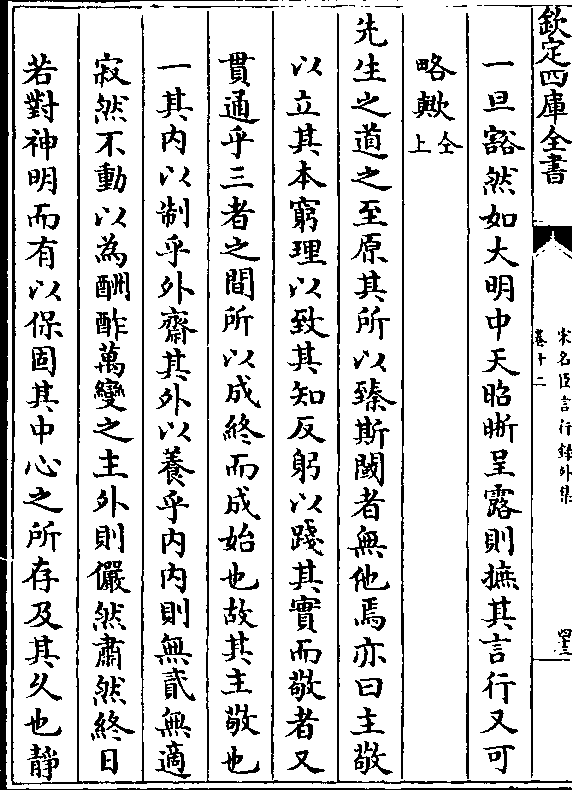 欽定四庫全書
宋名臣言行錄外集
卷十二
一旦豁然如大明中天昭晰呈露則撫其言行又可
略歟仝上
先生之道之至原其所以臻斯閾者無他焉亦曰主敬
以立其本窮理以致其知反躬以踐其實而敬者又
貫通乎三者之間所以成終而成始也故其主敬也
一其內以制乎外齋其外以養乎內內則無貳無適
寂然不動以為酬酢萬變之主外則儼然肅然終日
若對神明而有以保固其中心之所存及其久也靜